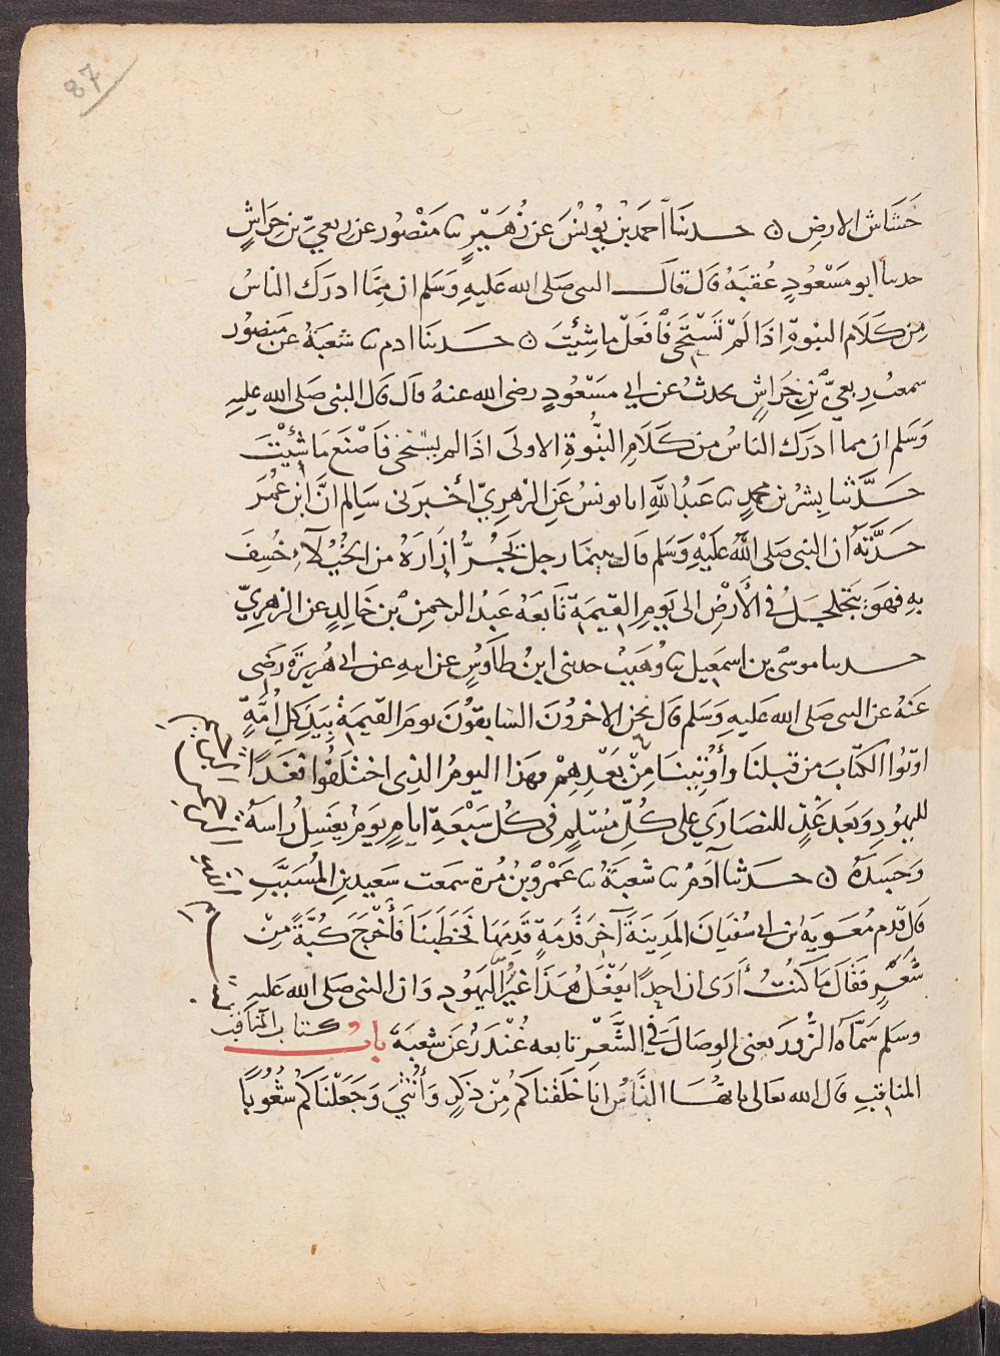 87
خَشَاش الارضِ ۞ حدثنا احمد بن يُونُسَ عن زُهَيْرٍ ثنا مَنْصُور عن رِبعيّ بن حِرَاشٍ
حدثنا ابو مَسْعُودٍ عُقبَهُ قال قال النبى صَلى الله عليهِ وَسَلم ان مِمَّا ادرَكَ الناسُ
مِن كَلَام النبوةِ اِذَا لَمْ تَسْتَحْىِ فَافعَلْ ما شِيْتَ ۞ حَدثنَا ادم ثنا شعبَةُ عن مَنصُور
سمعتُ رِبعىَّ بن حِرَاشٍ يحدثُ عن ابي مَسْعُودٍ رضى الله عنهُ قال قال النبى صَلى الله عليهِ
وَسَلم ان مما ادرَكَ الناسُ من كَلَامِ النبُّوةِ الاولى اذَا لم تستحى فَاصْنَع مَا شِئْتَ
حَدَّثنا بِشرُ بن محمدٍ ثنا عَبدُ اللَّهِ انا يونسُ عَنِ الزهرِيّ أخبَرَنى سَالِم انَّ ابنَ عُمَرَ
حَدَّثَهُ ان النبى صَلى اللهُ عَلَيْهِ وَسَلم قال بينمَا رجل يَجُرُّ اِزَارَهُ من الخُيَلَآءِ خُسِفَ
بهِ فهوَ يَتجَلجَلُ في الأرْضِ الى يَومِ القِيٰمَةِ تَابَعَهُ عَبدُ الرحمنِ بن خَالِدٍ عن الزهرِيّ
حدثنا موسى بن اسمٰعيل ثنا وُهَيبٌ حدثنى ابنُ طاَوُسٍ عن ابيهِ عن ابى هُرَيرَةَ رَضى
عَنهُ عن النبى صَلى الله عَليهِ وَسَلم قال نحن الاخرُونَ السَابقُونَ يومَ القيٰمَةِ بَيدَ كُلِ اُمَّةٍ
اوتُوا الكتَابَ من قبلنَا وأوُتِينَا مِنْ بَعْدِهِمْ فهَذا اليومُ الذِى اختَلَفُوا فَغَداً
لليهُودِ وَبَعدَ غَدٍ للنصَارَى على كُلِّ مُسْلِمٍ فى كُل سَبْعَةِ ايامٍ يَومٌ يغسِلُ رَاسَهُ
وَجَسَدَهُ ۞ حَدثنا آدَمُ ثنا شعبَةُ ثنا عَمْرُو بنُ مُرة سمعت سَعِيدَ بن المُسَيَّبِ
قال قدم مُعَوِيَة بن ابى سُفيَانَ المَدِينَةَ آخرَ قَدمَةٍ قَدِمَهَا فخَطَبَنَا فَأَخْرَجَ كُبَّةً مِنْ
شَعَرٍ فَقَالَ مَا كُنتُ أُرَى ان احدًا يَفْعَلُ هَذَا غَيْرُ اليَهُودِ وَان النبى صَلى الله عَليهِ
وسَلم سَمَّاهُ الزُّورَ يعنى الوِصَالَ في الشَّعْرِ تابعه غُنْدَرٌ عَن شعبَةَ بابُ كتاب المناقب
المناقبِ قال الله تعالى يايُّهَا النَّاسُ انَا خلَقنَاكُم مِنْ ذَكَرٍ وَأُنْثٰى وَجَعَلْنَاكُم شُعُوبًا